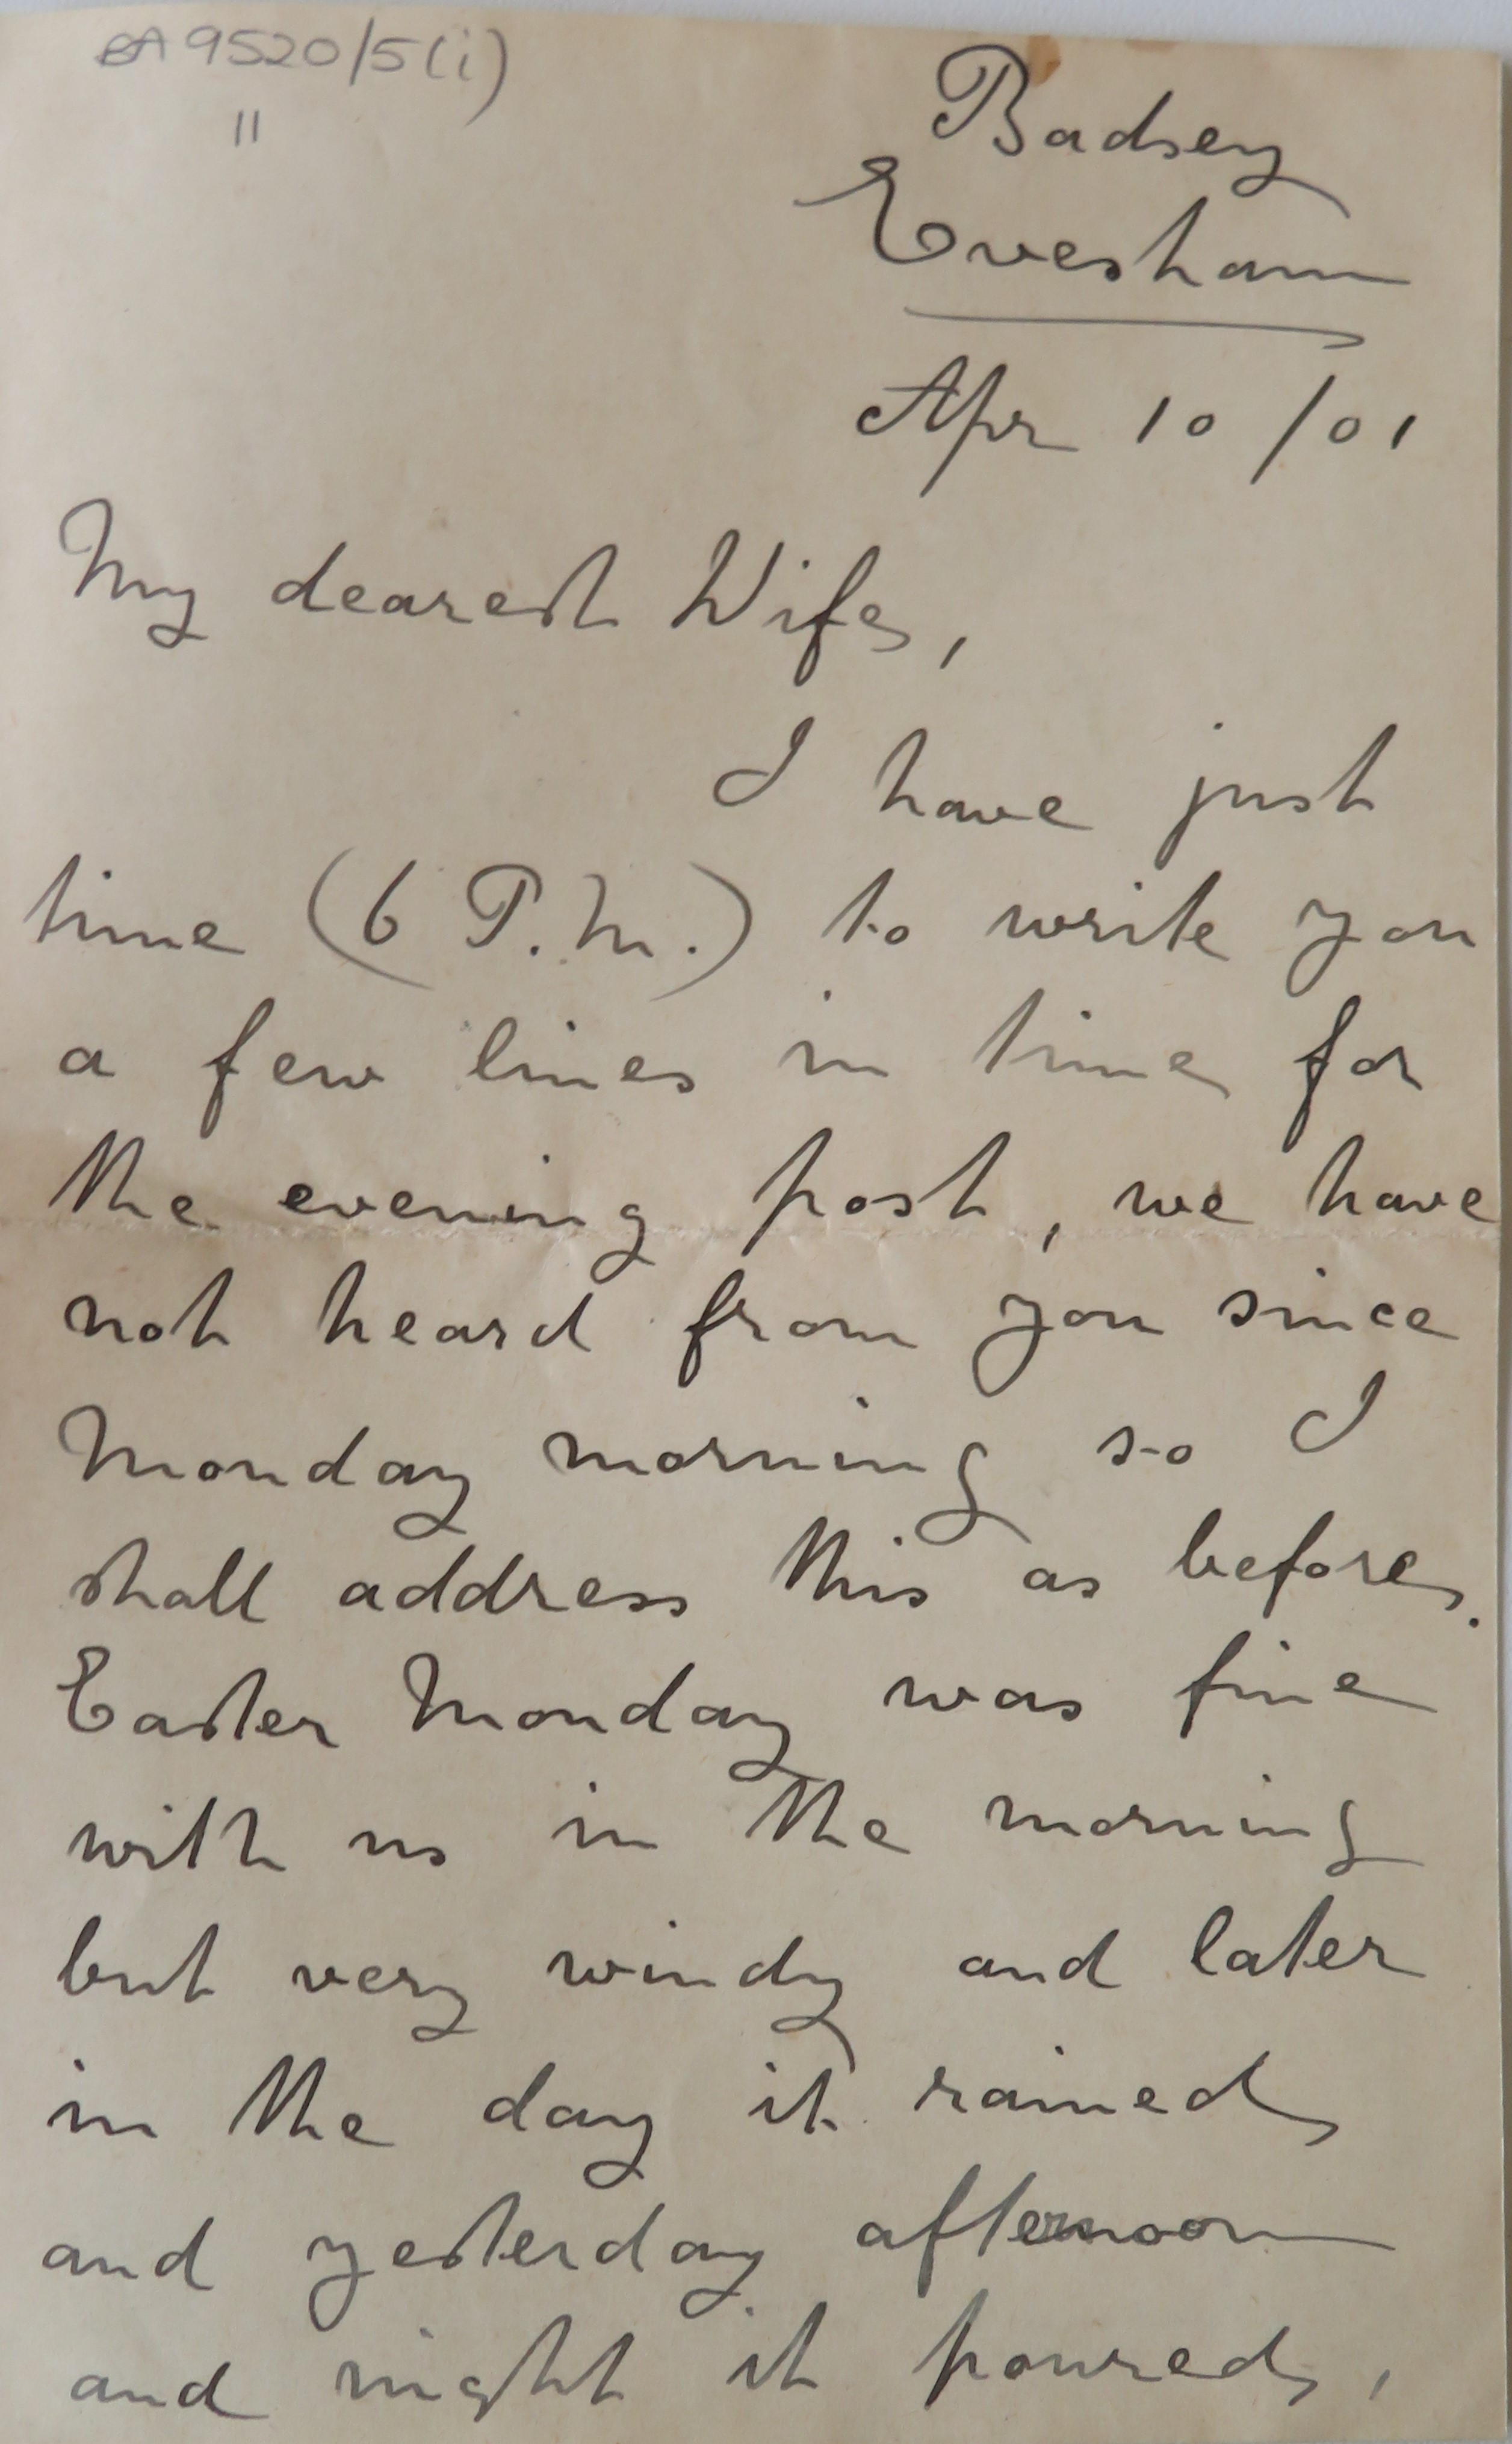 BA 9520/5(i)
"
Badsey
Evesham
Apr 10/01
My dearest Wife,
I have just
time (6 P.M.) to write you
a few lines in time for
the evening post, we have
not heard from you since
Monday morning so I
shall address this as before.
Easter Monday was fine
with us in the morning
but very windy and later
in the day it rained
and yesterday afternoon
and night it poured,